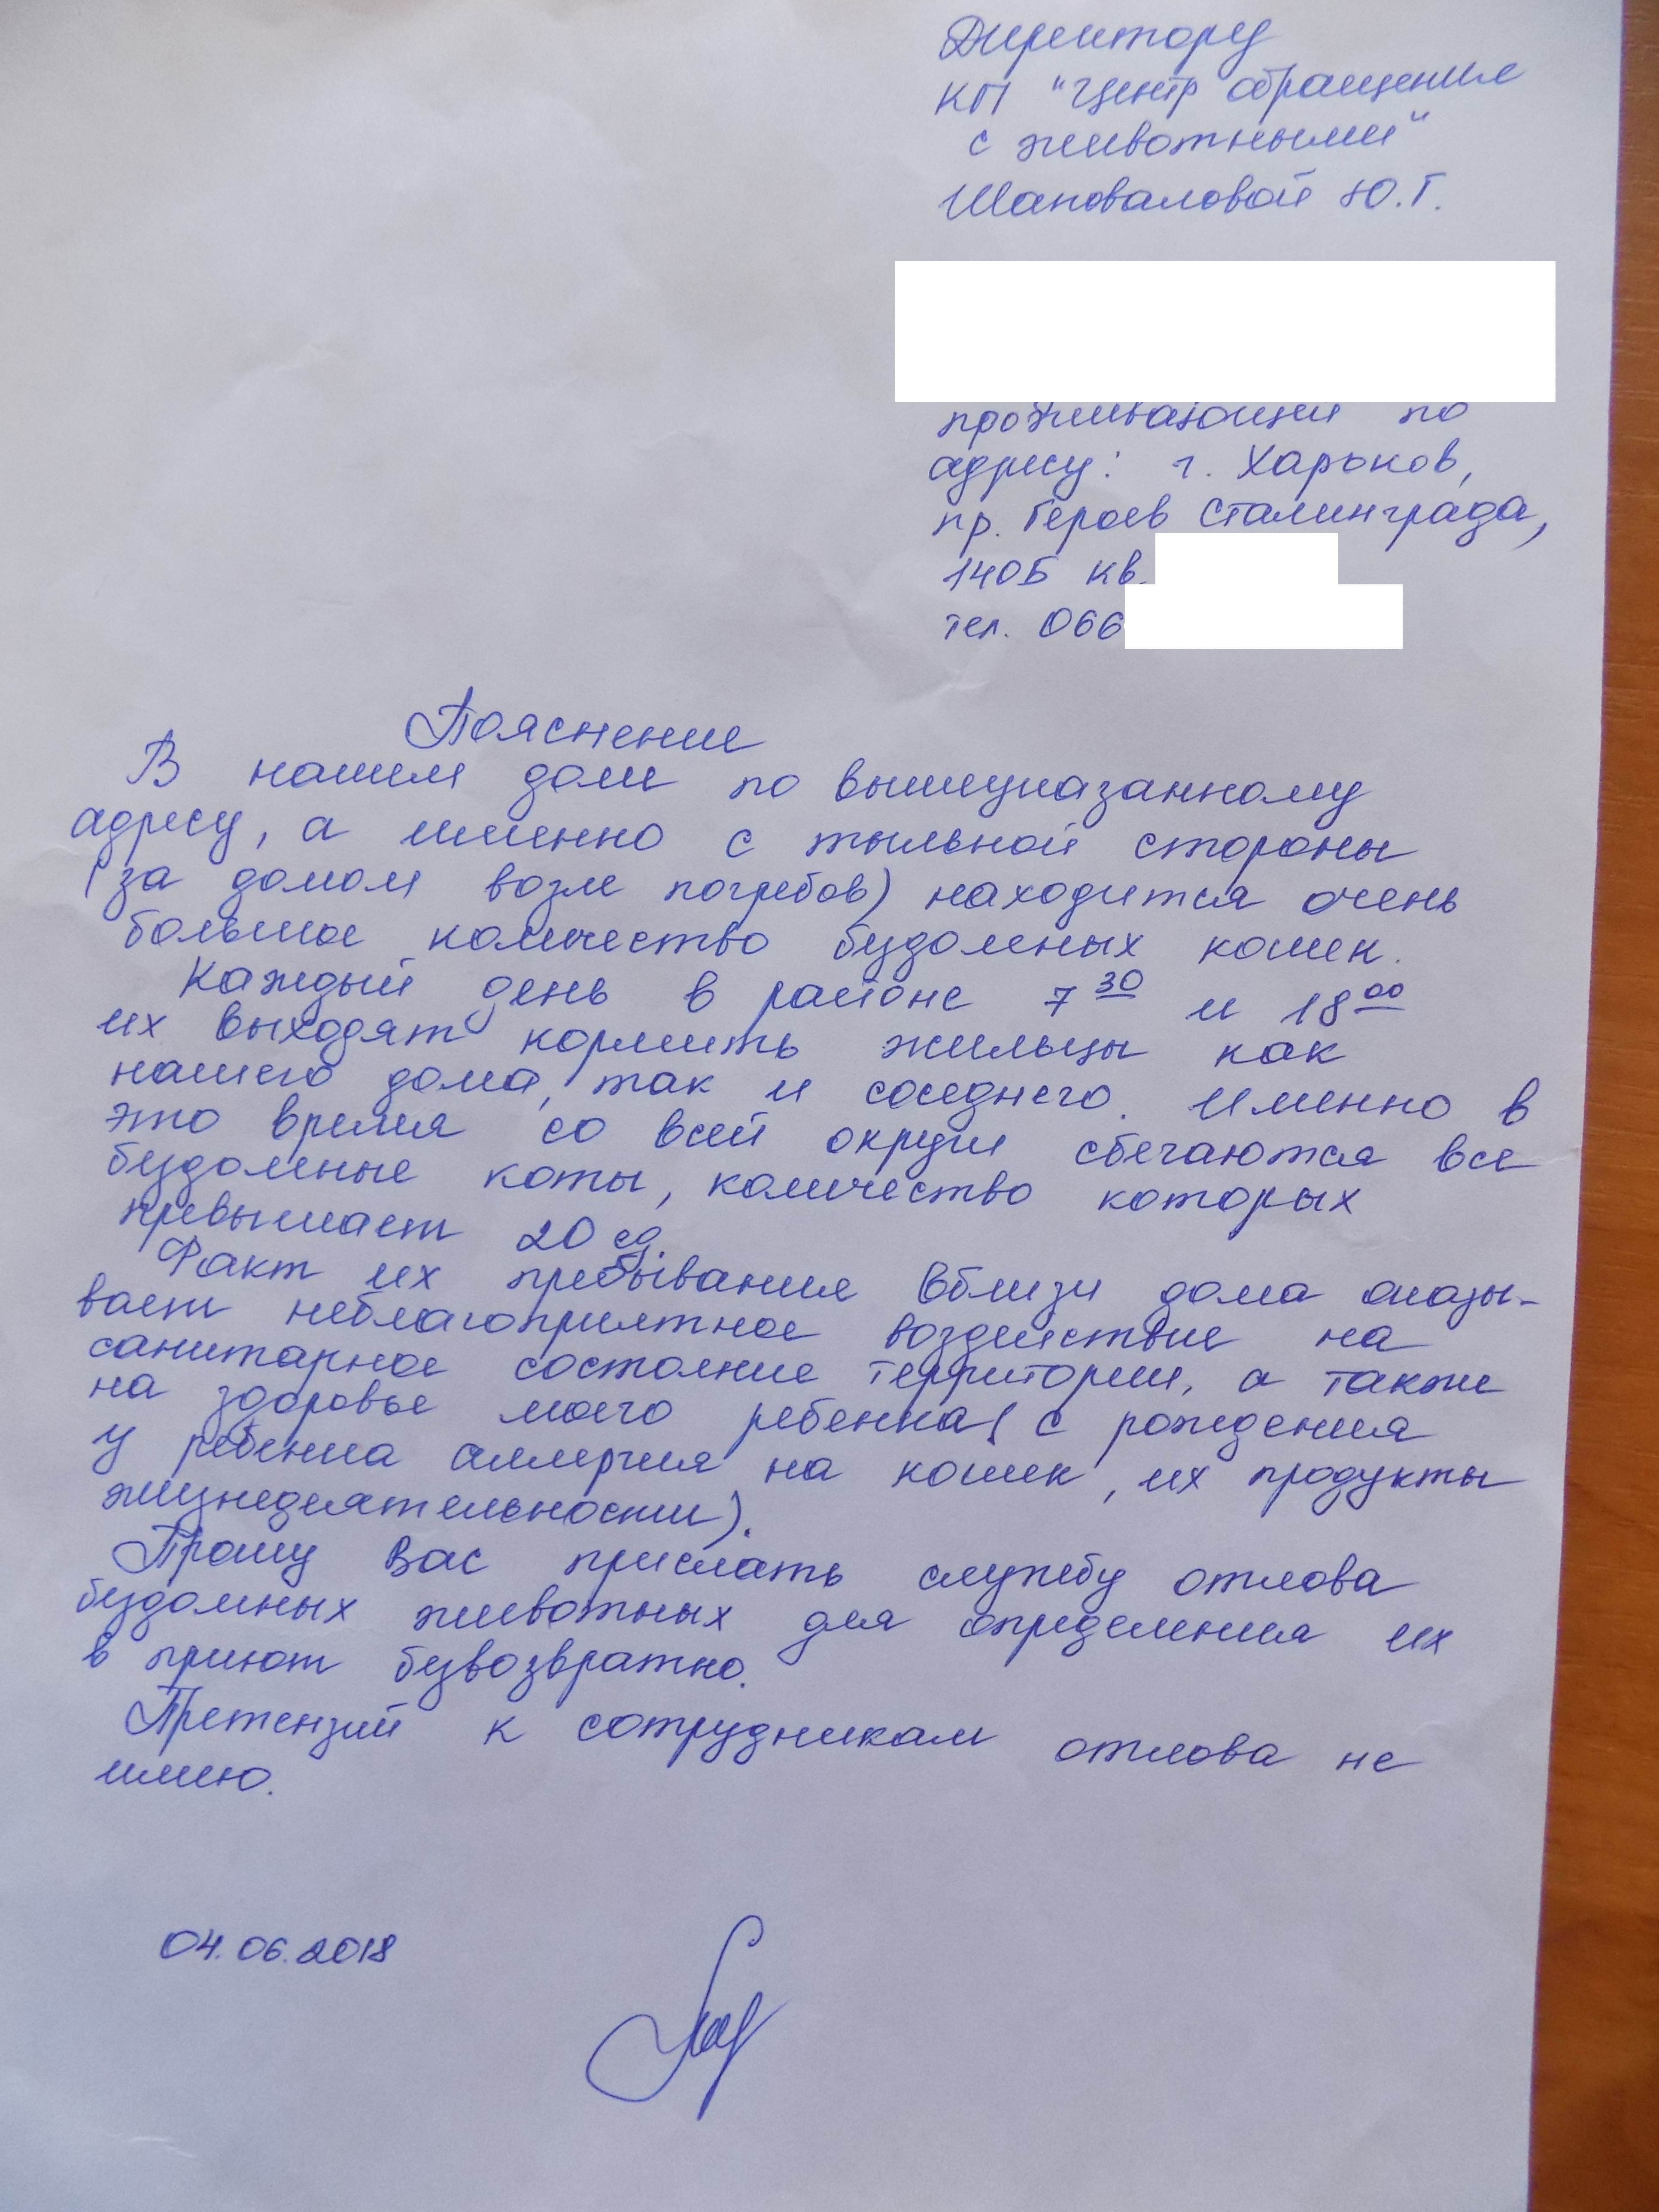 Директору
КП "Центр обращения
с животными"
Шаповаловой Ю.Г.
проживающей по
адресу: г. Харьков,
пр. Героев Сталинграда,
140Б кв.
тел. 066
Пояснение
В нашем доме по вышеуказанному
адресу, а именно с тыльной стороны
(за домом возле погребов) находится очень
большое количество бездомных кошек.
Каждый день в районе 7 30 и 18 00
их выходят кормить жильцы как
нашего дома, так и соседнего. Именно в
это время со всей округи сбегаются все
бездомные коты, количество которых
превышает 20 ед.
Факт их пребывания вблизи дома оказы-
вает неблагоприятное воздействие на
санитарное состояние территории, а также
на здоровье моего ребенка (с рождения
у ребенка аллергия на кошек, их продукты
жизнедеятельности).
Прошу Вас прислать службу отлова
бездомных животных для определения их
в приют безвозвратно.
Претензий к сотрудникам отлова не
имею.
04.06.2018